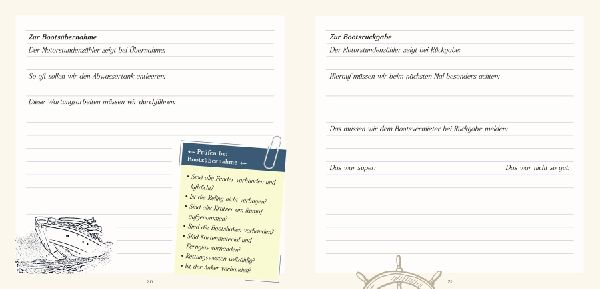 Zur Bootsübernahme
Der Motorstundenzähler zeigt bei Übernahme:
So oft sollen wir den Abwassertank entleeren:
Diese Wartungsarbeiten müssen wir durchführen:
Prüfen bei
Bootsübernahme
• Sind alle Fender vorhanden und
• Ist die Reling nicht verbogen?
• Sind alle Kratzer am Rumpf
aufgenommen?
• Sind die Bootshaken vorhanden?
• Sind Kartenmaterial und
Fernglas vorhanden?
• Rettungswesten vollzählig?
• Ist der Anker
20
Zur Bootsrückgabe
Der Motorstundenzähler zeigt bei Rückgabe:
Hierauf müssen wir beim nächsten Mal besonders achten:
Das müssen wir dem Bootsvermieter bei Rückgabe melden:
Das war super:
Das war nicht so gut: